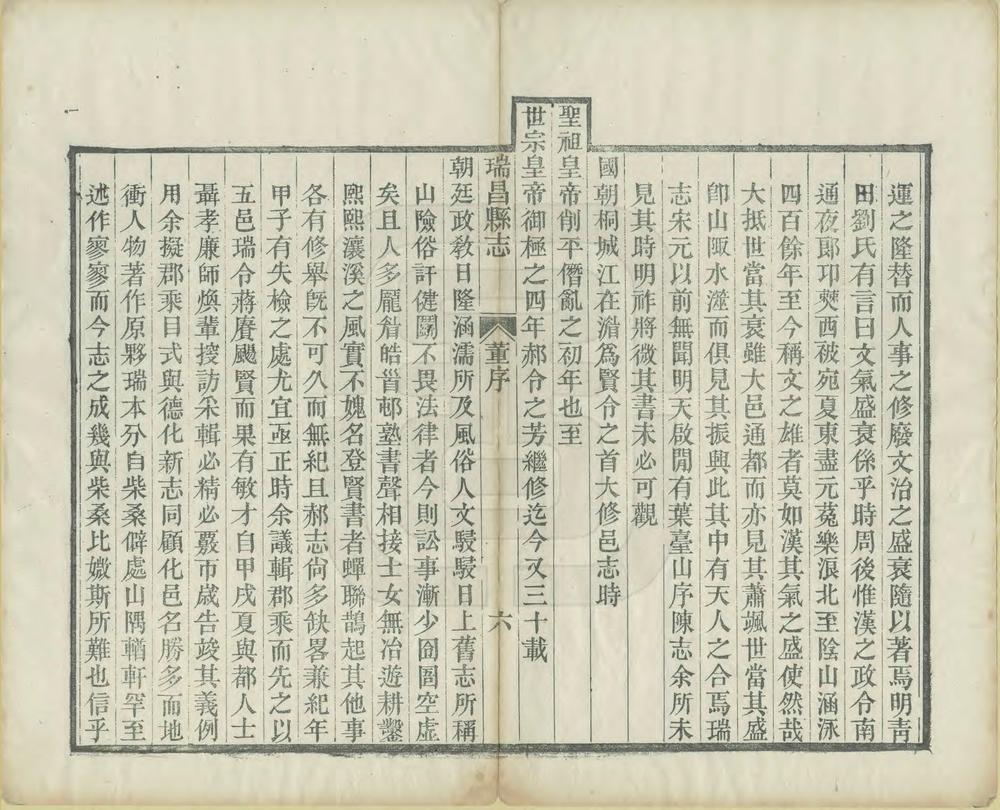 運之隆替而人事之修廢文治之盛衰隨以著焉明靑
田劉氏有言曰文氣盛衰係乎時周後惟漢之政令南
通夜郎卭僰西被宛夏東盡元菟樂浪北至陰山涵泳
四百餘年至今稱文之雄者莫如漢其氣之盛使然哉
大抵世當其衰雖大邑通都而亦見其蕭颯世當其盛
卽山陬水澨而俱見其振興此其中有天人之合焉瑞
志宋元以前無聞明天啟閒有葉臺山序陳志余所未
見其時明祚將微其書未必可觀
國朝桐城江在湽爲賢令之首大修邑志時
聖祖皇帝削平僭亂之初年也至
世宗皇帝御極之四年郝令之芳繼修迄今又三十載
瑞昌縣志 董序 六
朝廷政敎日隆涵濡所及風俗人文駸駸日上舊志所稱
山險俗訐健鬭不畏法律者今則訟事漸少囹圄空虛
矣且人多龎眉皓首邨塾書聲相接士女無冶遊耕鑿
熙熙瀼溪之風實不媿名登賢書者蟬聯鵲起其他事
各有修舉旣不可久而無紀且郝志尙多缺畧兼紀年
甲子有失檢之處尤宜亟正時余議輯郡乘而先之以
五邑瑞令蔣賡颺賢而果有敏才自甲戌夏與都人士
聶孝廉師煥輩搜訪采輯必精必覈帀歲告竣其義例
用余擬郡乘目式與德化新志同顧化邑名勝多而地
衝人物著作原夥瑞本分自柴桑僻處山隅輶軒罕至
述作寥寥而今志之成幾與柴桑比媺斯所難也信乎